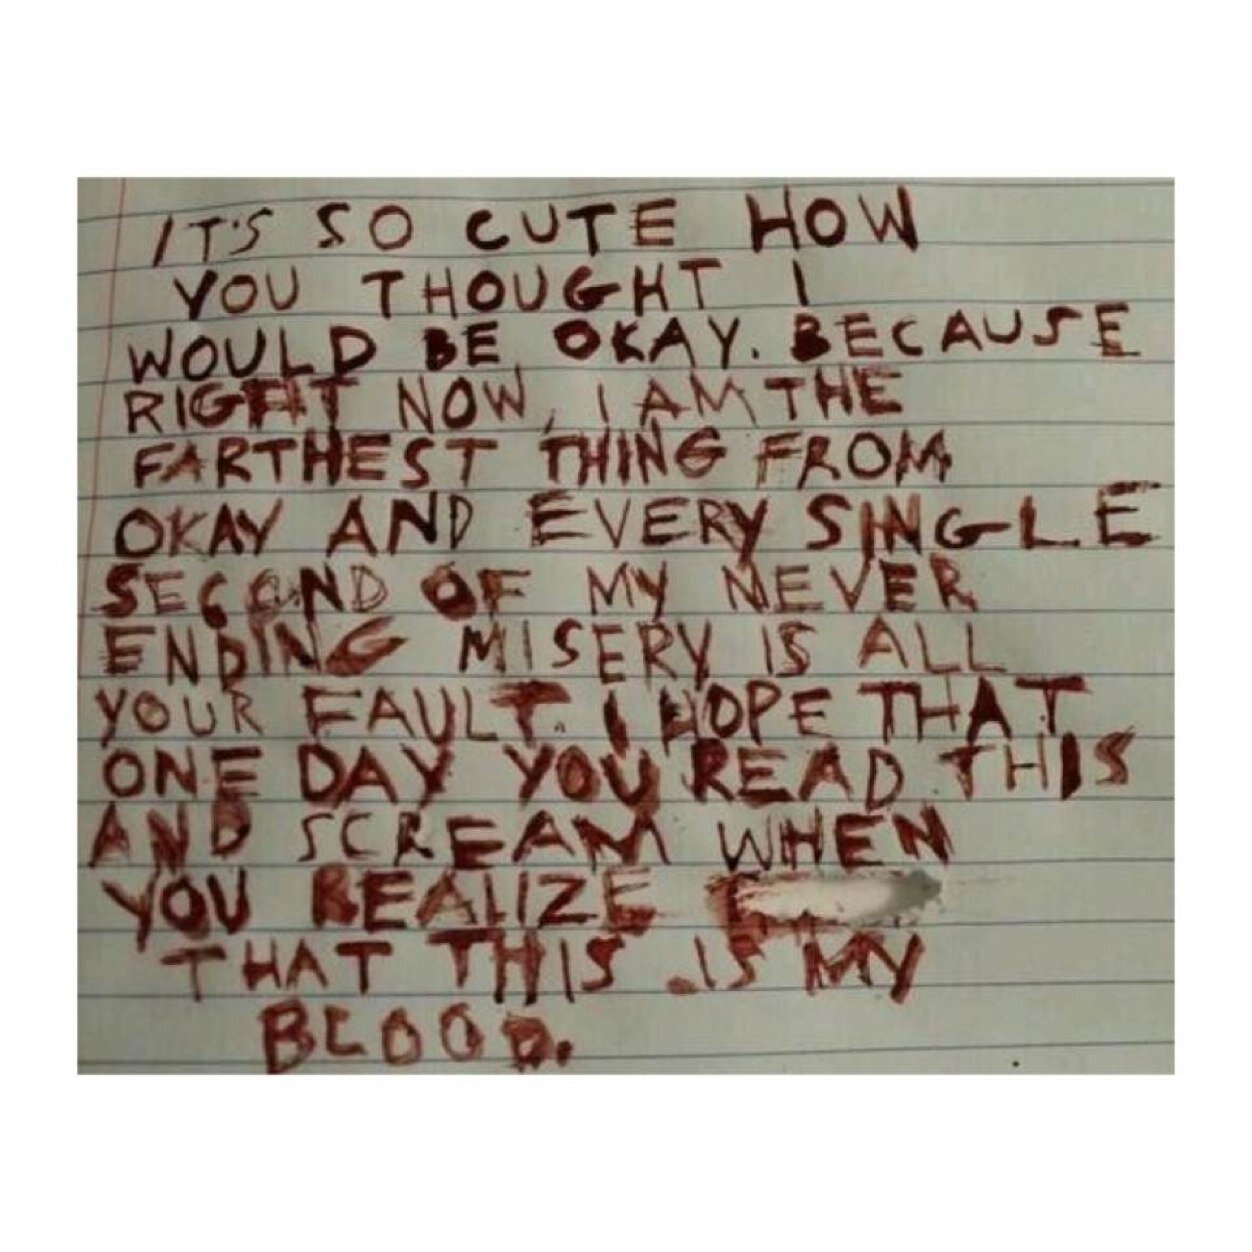 IT'S SO CUTE HOW
YOU THOUGHT I
WOULD BE OKAY. BECAUSE
RIGHT NOW, I AM THE
FARTHEST THING FROM
OKAY AND EVERY SINGLE
SECOND OF MY NEVER
ENDING MISERY IS ALL
YOUR FAULT. I HOPE THAT
ONE DAY YOU READ THIS
AND SCREAM WHEN
YOU REALIZE
THAT THIS IS MY
BLOOD.